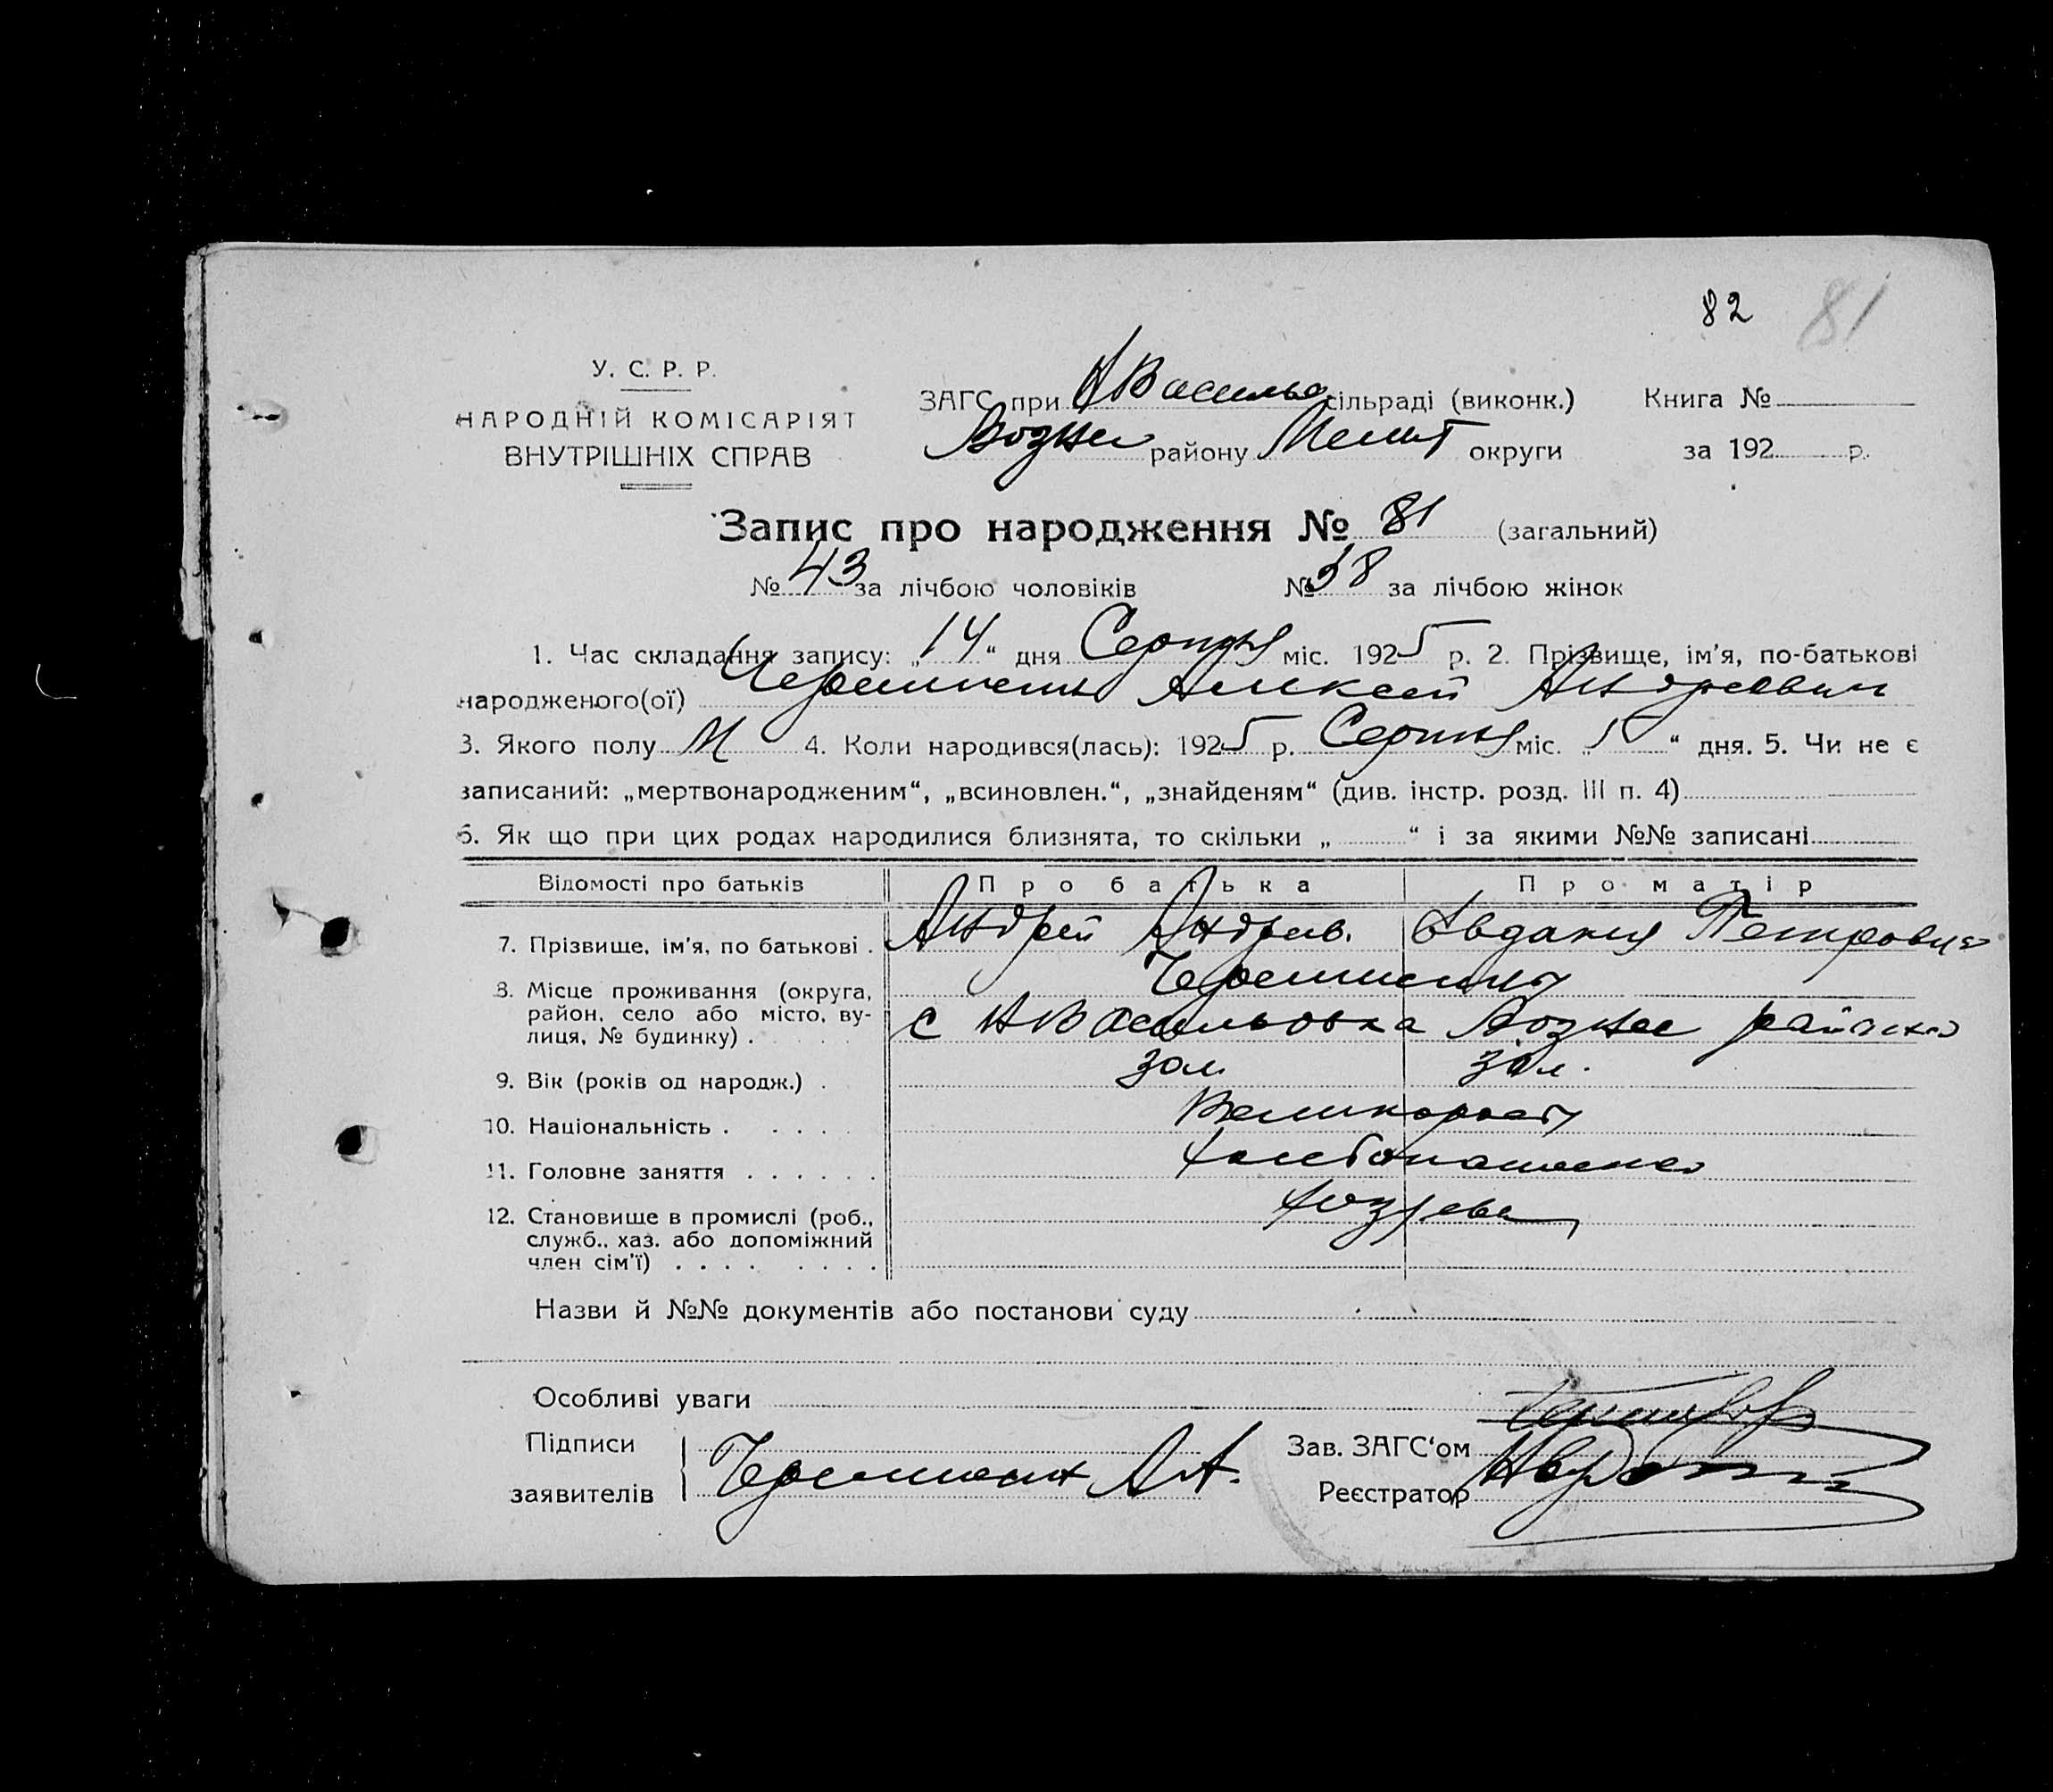 82 81
У. С. Р. Р.
НАРОДНІЙ КОМІСАРІЯТ
ВНУТРІШНІХ СПРАВ
ЗАГС при НВасильо сільраді (виконк.) Книга №
Возне району Мелит округи за 192 р.
Запис про народження № 81 (загальний)
№ 43 за лічбою чоловіків № 38 за лічбою жінок
1. Час складання запису: „14“ дня Серпня міс. 1925 р. 2. Прізвище, ім'я, по-батькові
народженого(ої) Алексей Андреевич
3. Якого полу М 4. Коли народився(лась): 1925 р. Серпня міс. „5“ дня. 5. Чи не є
записаний: „мертвонародженим“, „всиновлен.“, „знайденям“ (див. інстр. розд. III п. 4)
6. Як що при цих родах народилися близнята, то скільки „ “ і за якими №№ записані
Відомості про батьків Про батька Про матір
7. Прізвище, ім'я, по батькові . Андрей Андрев. Евдакия Петровна
8. Місце проживання (округа,
район, село або місто, ву-
лиця, № будинку) . с НВасильовка Возне района
9. Вік (років од народж.) . 30л. 30л.
10. Національність . . . . Великорост
11. Головне заняття . . . . . . хлебопашество
12. Становище в промислі (роб.,
служб., хаз. або допоміжний
член сім'ї) . . . . . . . .
Назви й №№ документів або постанови суду
Особливі уваги
Підписи
заявителів А.А.
Зав. ЗАГС'ом
Реєстратор